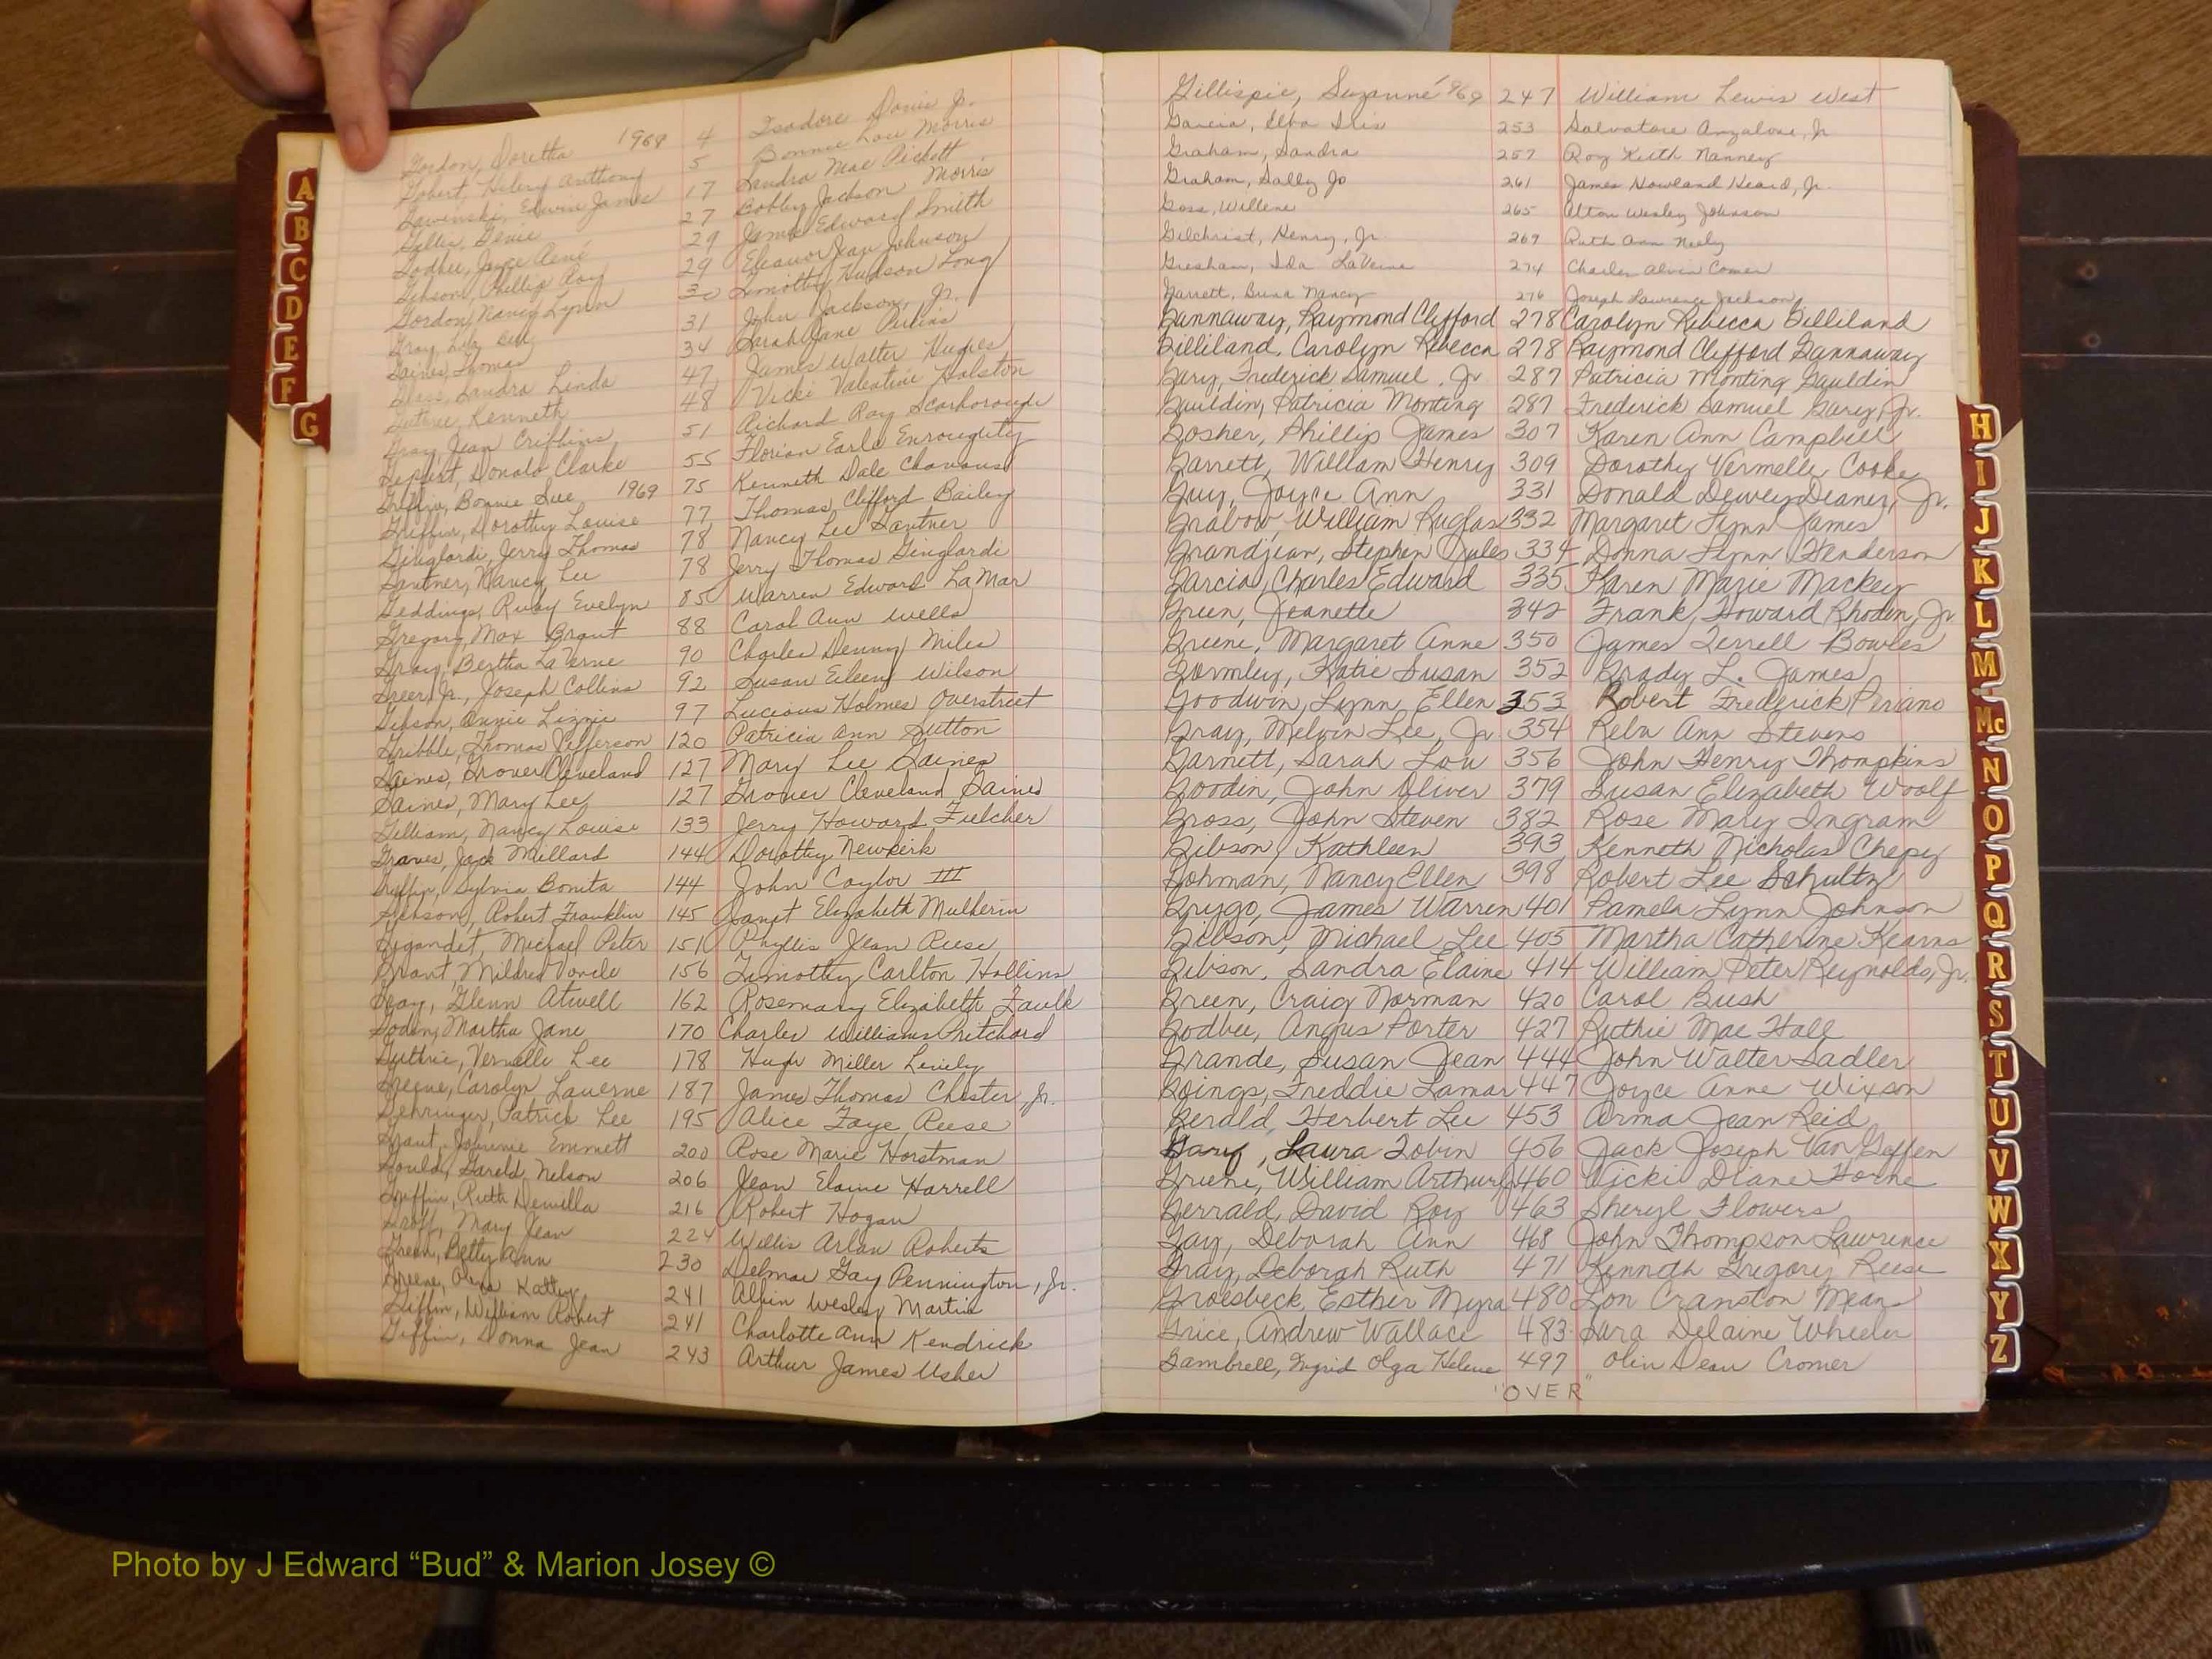 Gordon, Doretha 1968 4 Isadore Davis Jr.
Gobert, Hilery Anthony 5 Bonnie Lou Morris
Gawinski, Edwin James 17 Sandra Mae Pickett
Gallie, Genie 27 Bobby Jackson Morris
Godbee, Joyce René 29 James Edward Smith
Gibson, Phillip Ray 29 Eleanor Jean Johnson
Gordon, Nancy Lynn 30 Timothy Hudson Long
Gray, 31 John Jackson, Jr.
Gaines, Thomas 34 Sarah Jane Perkins
Glass, Sandra Linda 47 James Walter Hughes
Guthrie, Kenneth 48 Vicki Valentine Halston
Gray, Jean Cribbins 51 Richard Ray Scarborough
Gephart, Donald Clarke 55 Florian Earle Enroughty
Griffin, Bonnie Sue 1969 75 Kenneth Dale Chavous
Griffin, Dorothy Louise 77 Thomas Clifford Bailey
Ginglardi, Jerry Thomas 78 Nancy Lee Gantner
Gantner, Nancy Lee 78 Jerry Thomas Ginglardi
Geddings, Ruby Evelyn 85 Warren Edward LaMar
Gregory, Max Brant 88 Carol Ann Wells
Gray, Bertha LaVerne 90 Charles Denny Miles
Greer, Jr., Joseph Collins 92 Susan Eileen Wilson
Gibson, Annie Lizzie 97 Lucious Holmes Overstreet
Gribble, Thomas Jefferson 120 Patricia Ann Sutton
Gaines, Grover Cleveland 127 Mary Lee Gaines
Gaines, Mary Lee 127 Grover Cleveland Gaines
Gilliam, Nancy Louise 133 Jerry Howard Fulcher
Graves, Jack Millard 144 Dorothy Newkirk
Griffin, Sylvia Bonita 144 John Caylor III
Gibson, Robert Franklin 145 Janet Elizabeth Mulherin
Gigandet, Michael Peter 151 Phyllis Jean Reese
Grant, Mildred 156 Timothy Carlton Hollins
Gray, Glenn Atwell 162 Rosemary Elizabeth Faulk
Godin, Martha Jane 170 Charles Williams Pritchard
Guthrie, Vernelle Lee 178 Hugh Miller
Greene, Carolyn Laverne 187 James Thomas Chester, Jr.
Gehringer, Patrick Lee 195 Alice Faye Reese
Grant, Johnnie Emmett 200 Rose Marie Horstman
Gould, Garold Nelson 206 Jean Elaine Harrell
Griffin, Ruth Dewilla 216 Robert Hogan
Groff, Mary Jean 224 Willis Arlan Roberts
Green, Betty Ann 230 Delmar Gay Pennington, Jr.
Greene, Kathy 241 Alvin Wesley Martin
Giffin, William Robert 241 Charlotte Ann Kendrick
Giffin, Donna Jean 243 Arthur James Usher
Gillispie, Suzanne 1969 247 William Lewis West
Garcia, Elba Iris 253 Salvatore Anzalone, Jr
Graham, Sandra 257 Roy Keith Nanney
Graham, Sally Jo 261 James Howland Heard, Jr.
Goss, Willene 265 Alton Wesley Johnson
Gilchrist, Henry, Jr 269 Ruth Ann Neely
Gresham, Ida LaVerne 274 Charles Alvin Comer
Garrett, Nancy 276 Joseph Lawrence Jackson
Gannaway, Raymond Clifford 278 Carolyn Rebecca Gilliland
Gilliland, Carolyn Rebecca 278 Raymond Clifford Gannaway
Gary, Frederick Samuel, Jr 287 Patricia Monting Gauldin
Gauldin, Patricia Monting 287 Frederick Samuel Gary, Jr.
Gosher, Phillip James 307 Karen Ann Campbell
Garrett, William Henry 309 Dorothy Vermelle Cooke
Guy, Joyce Ann 331 Donald Dewey Deaner, Jr.
Grabow, William Ruglas 332 Margaret Lynn James
Grandjean, Stephen Jules 334 Donna Lynn Henderson
Garcia, Charles Edward 335 Karen Marie Mackey
Green, Jeanette 342 Frank Howard Rhoden, Jr.
Greene, Margaret Anne 350 James Terrell Bowles
Gormley, Katie Susan 352 Brady L. James
Goodwin, Lynn Ellen 353 Robert Frederick Piriano
Gray, Melvin Lee, Jr. 354 Reba Ann Stevens
Garnett, Sarah Lou 356 John Henry Thompkins
Goodin, John Oliver 379 Susan Elizabeth Woolf
Gross, John Steven 382 Rose Mary Ingram
Gibson, Kathleen 393 Kenneth Nicholas Chepy
Gohman, Nancy Ellen 398 Robert Lee Schultz
Grygo, James Warren 401 Pamela Lynn Johnson
Gibson, Michael Lee 405 Martha Catherine Kearns
Gibson, Sandra Elaine 414 William Peter Reynolds, Jr.
Green, Craig Norman 420 Carol Bush
Godbee, Angus Porter 427 Ruthie Mae Hall
Grande, Susan Jean 444 John Walter Sadler
Goings, Freddie Lamar 447 Joyce Anne Wixson
Gerald, Herbert Lee 453 Arma Jean Reid
Gary, Laura Tobin 456 Jack Joseph Van Geffen
Greene, William Arthur Jr 460 Vicki Diane Horne
Gerrald, David Roy 463 Sheryl Flowers
Gay, Deborah Ann 468 John Thompson Lawrence
Gray, Deborah Ruth 471 Kenneth Gregory Reese
Groesbeck, Esther Myra 480 Lon Cranston Means
Grice, Andrew Wallace 483 Sara Delaine Wheeler
Gambrell, Ingrid Olga Helene 497 Olin Dean Cromer
"OVER"
A
B
C
D
E
F
G
H
I
J
K
L
M
Mc
N
O
P
Q
R
S
T
U
V
W
X
Y
Z
Photo by J Edward “Bud” & Marion Josey ©